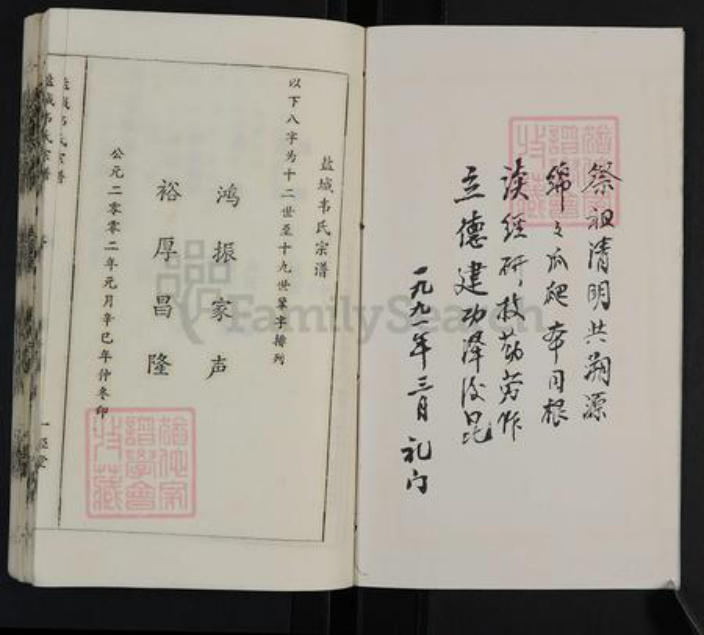 祭祖清明共溯源
绵々瓜瓞本同根
读经研技勤劳作
立德建功泽后昆
一九九一年三月 礼门
盐城韦氏宗谱
以下八字为十二世至十九世辈字排列
鸿振家声
裕厚昌隆
公元二零零二年元月辛巳年仲冬印
盐城韦氏宗谱
一经堂
FamilySearch